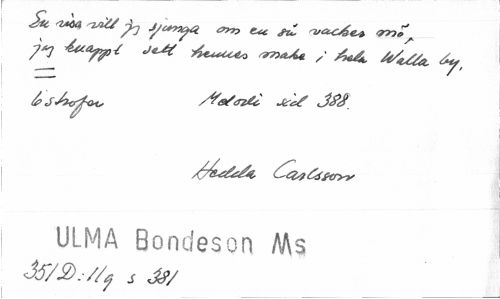 En visa vill jg sjunga om en så vacker mö,
jag knappt sett hennes make i hela Walla by.
6 strofer Melodi sid 388.
Hedda Carlsson
ULMA Bondeson Ms
351 D:11q s 381